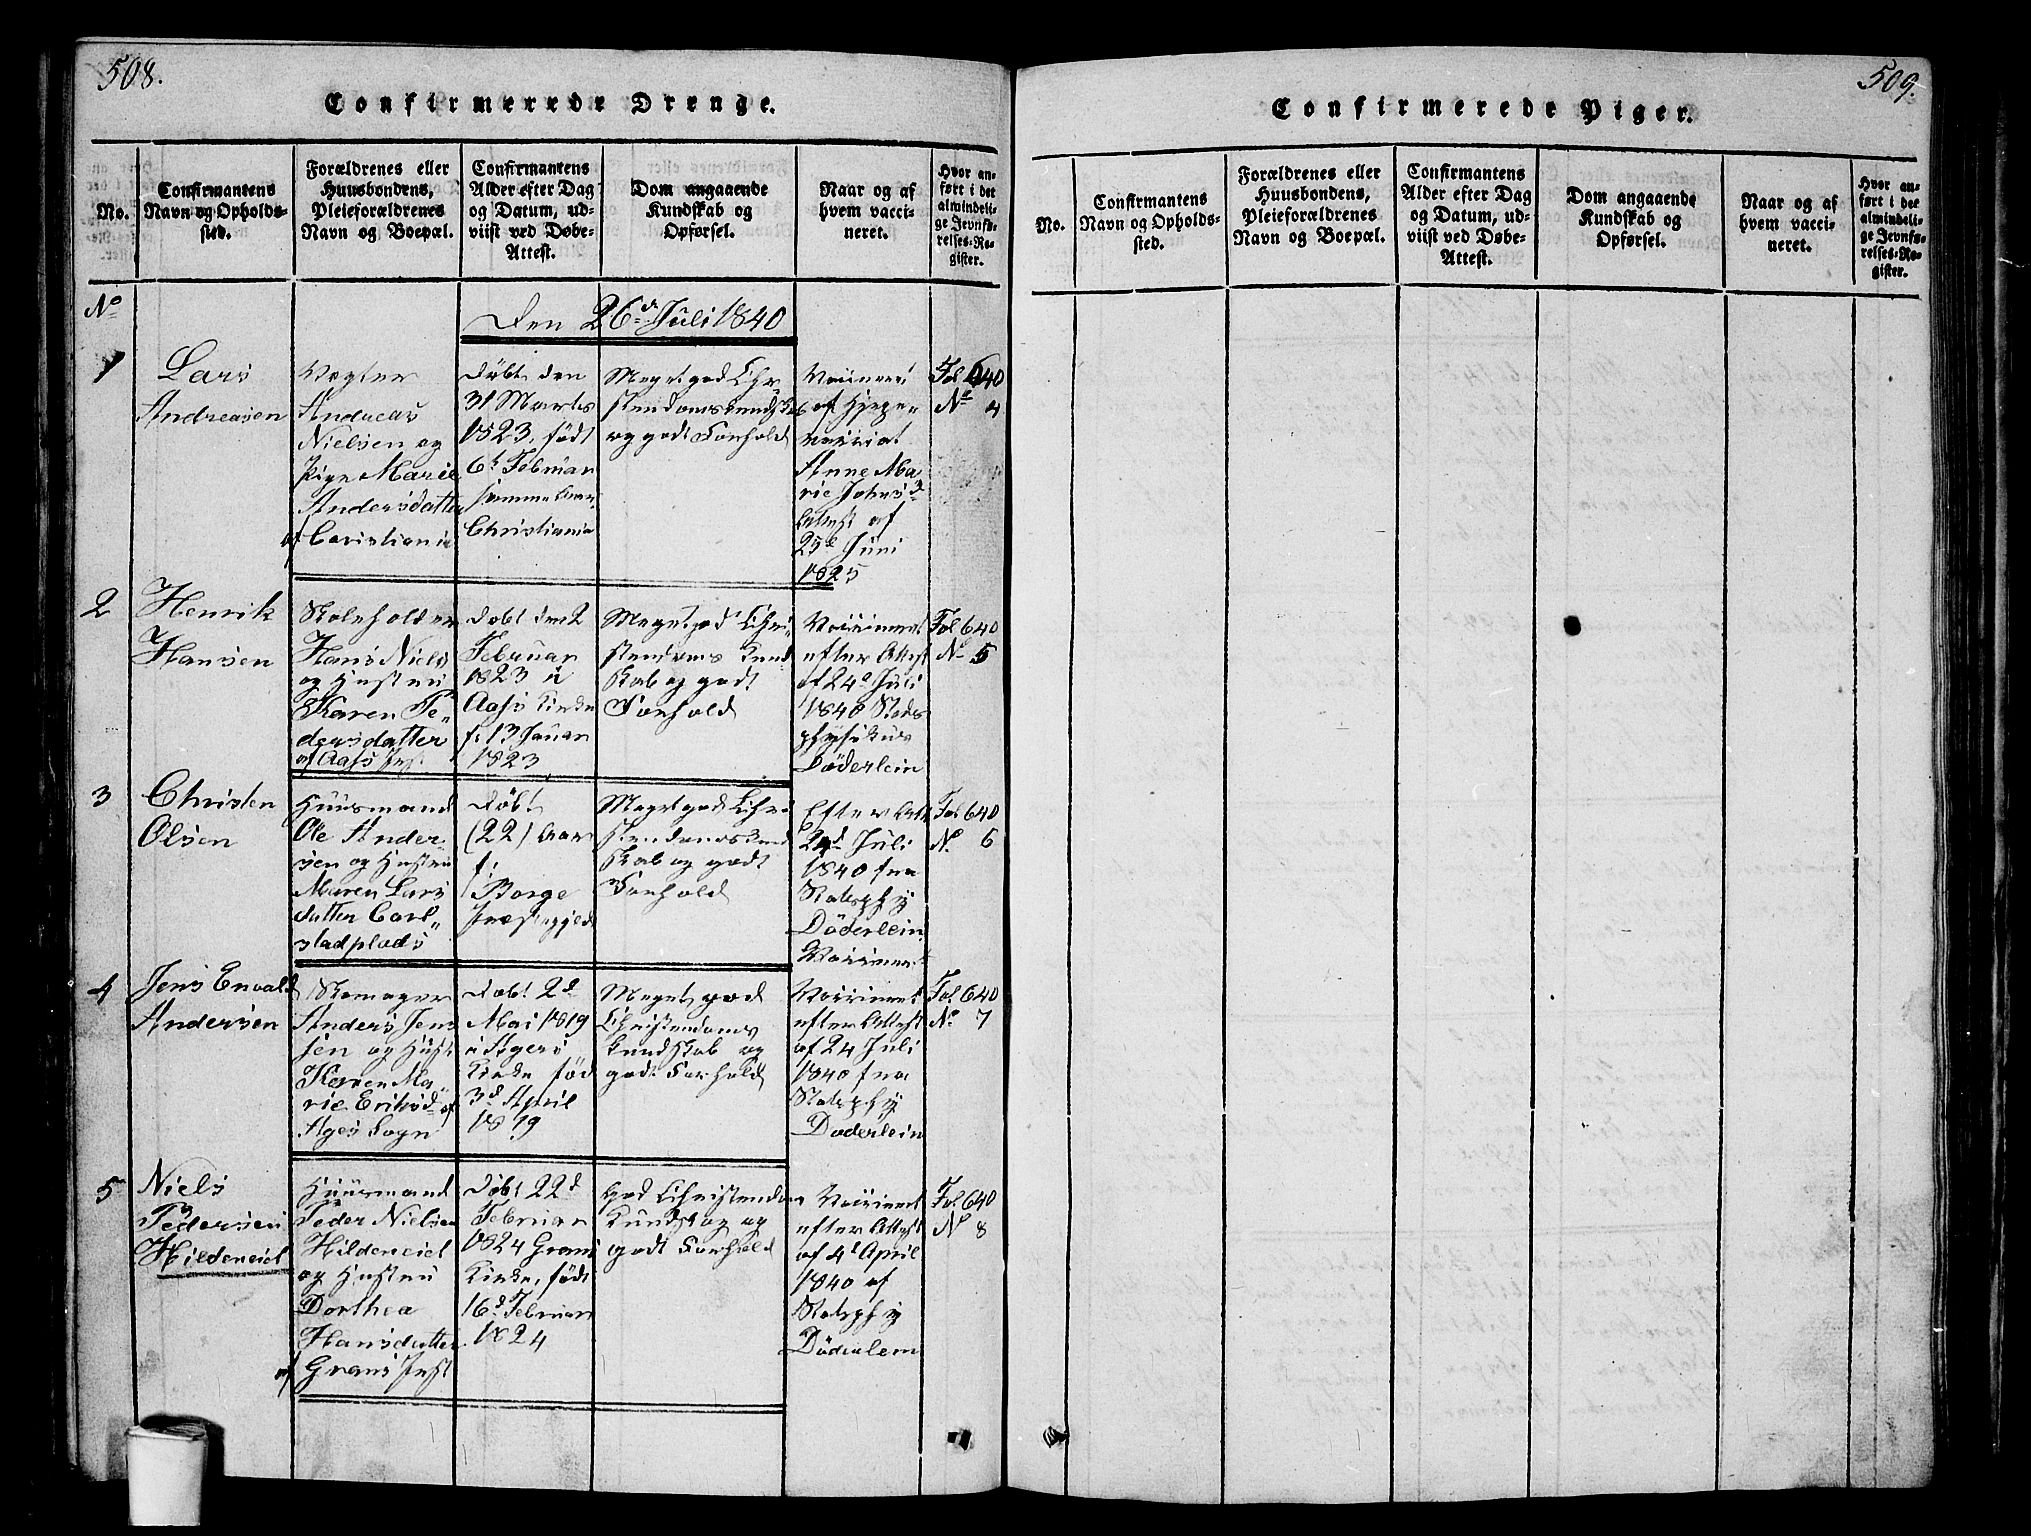 508.
Confirmerede Drenge.
No.
Confirmantens
Navn og Opholds-
sted.
Forældrenes eller
Huusbondens,
Pleieforældrenes
Navn og Boepæl.
Confirmantens
Alder efter Dag
og Datum, ud-
viist ved Døbe-
Attest.
Dom angaaende
Kundskab og
Opførsel.
Naar og af
hvem vacci-
neret.
Hvor an-
ført i det
almindeli-
ge Jevnfø-
relses-Re-
gister.
No
Den 26de Juli 1840
1
Lars
Andreasen
Vegter
Andreas
Nielsen og
Pige Marie
Andersdatter
af Christiania
Døbt den
31 Marts
1823, født
6t Februar
samme Aar
Christiania
Meget god Chr
stendomskundsk
og godt Forhold
af
Anne Ma
rie Johnsd
Attest af
25de Juni
1825
Fol 640
No 4
2
Henrik
Hansen
Skoleholder
Hans Niels
og Hustru
Karen Pe-
dersdatter
af Aass Prst
Døbt den 2
Februar
1823 i
Aass Kirke
f. 13 Januar
1823
Meget god Chri-
stendoms Kund
skab og godt
Forhold
Vaccineret
efter Attest
af 24d Juli
1840 Stads
physikus
Döderlein
Fol 640
No 5
3
Christen
Olsen
Huusmand
Ole Ander-
sen og Hustru
Maren Lars
datter Carl-
stadplads
Døbt
(22) Aar
f.
i Borge
Præstegjeld
Meget god Chri
stendomskund
skab og godt
Forhold
Efter Att
24d Juli
1840 fra
Statsphy
Döderlein
Vaccineret
Fol 640
No 6
4
Jens Envald
Andersen
Skomager
Anders Jens
sen og Hust
Karen Ma-
rie Eriksd af
Agers Sogn
Døbt 2d
Mai 1819
i Agers
Kirke fød
3d April
1819
Meget god
Christendoms
kundskab og
godt Forhold
Vaccineret
efter Attest
af 24 Juli
1840 fra
Statsphy
Döderlein
Fol 640
No 7
5
Niels
Pedersen
Hildeneiet
Huusmand
Peder Nielsen
Hildeneiet
og Hustru
Dorthea
Hansdatter
af Grans Prst
Døbt 22d
Februar
1824 Grans
Kirke, født
16d Februar
1824
God Christendom
Kundskag og
godt Forhold
Vaccineret
efter Attest
af 4d April
1840 af
Statsphy
Döderlein
Fol 640
No 8
509.
Confirmerede Piger.
No.
Confirmantens
Navn og Opholds-
sted.
Forældrenes eller
Huusbondens,
Pleieforældrenes
Navn og Boepæl.
Confirmantens
Alder efter Dag
og Datum, ud-
viist ved Døbe-
Attest.
Dom angaaende
Kundskab og
Opførsel.
Naar og af
hvem vacci-
neret.
Hvor an-
ført i det
almindeli-
ge Jevnfø-
relses-Re-
gister.